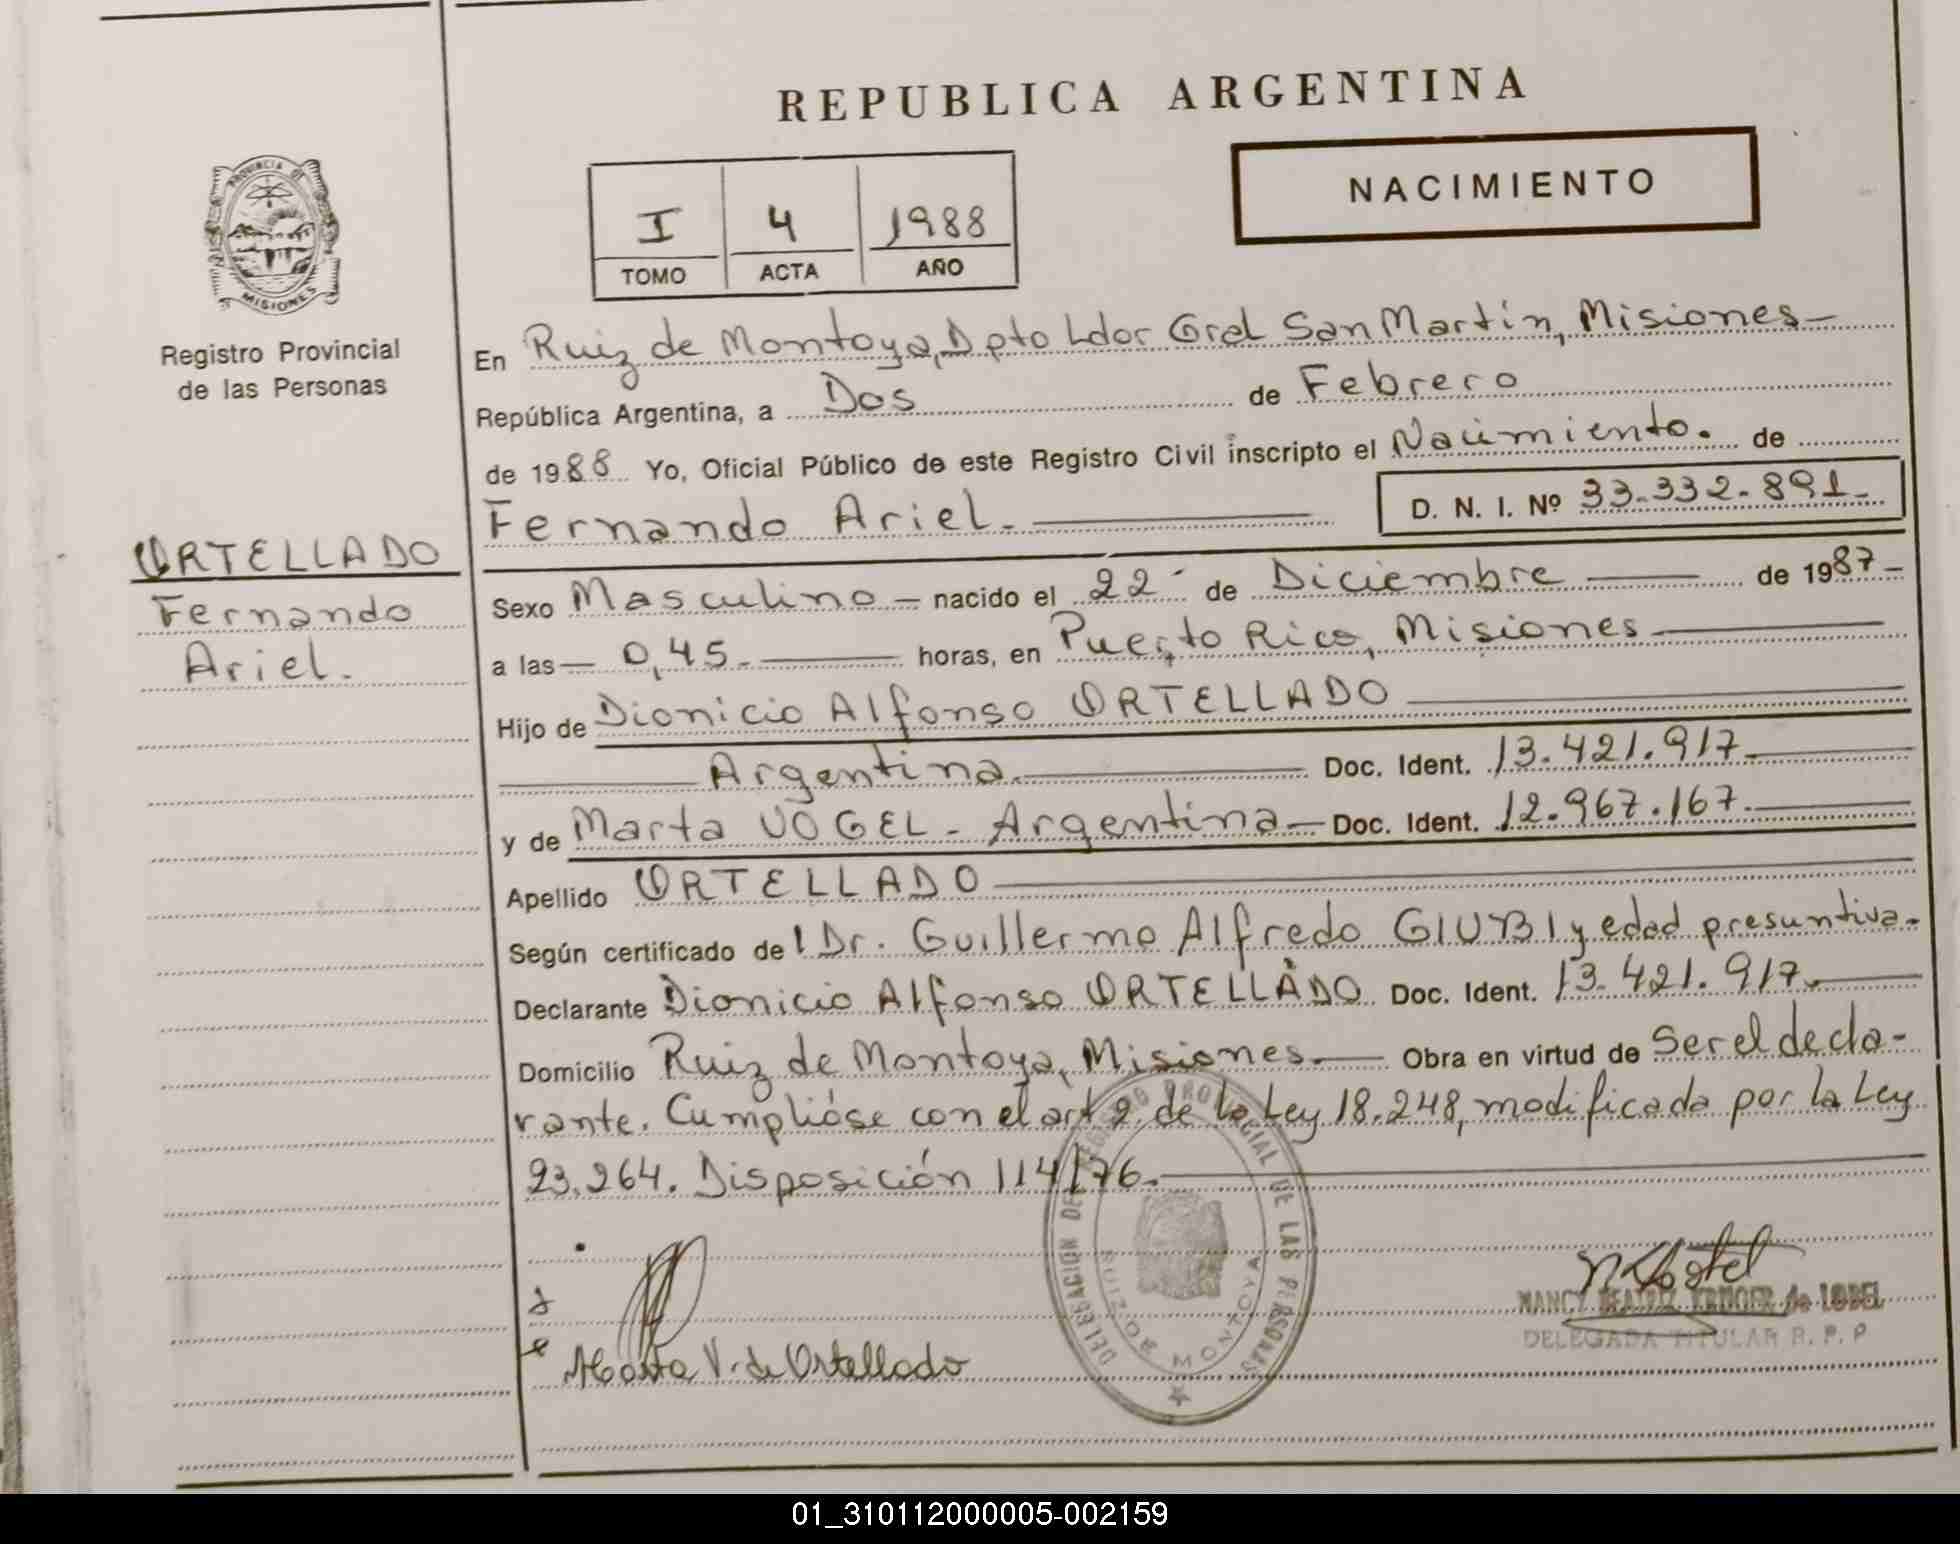 REPUBLICA ARGENTINA
PROVINCIA DE
MISIONES
Registro Provincial
de las Personas
I 4 1988
TOMO ACTA AÑO
NACIMIENTO
En Ruiz de Montoya, Dpto Ldor Gral San Martín, Misiones-
República Argentina, a Dos de Febrero
de 1988 Yo, Oficial Público de este Registro Civil inscripto el Nacimiento. de
Fernando Ariel.- D. N. I. Nº 33.332.891-
ORTELLADO
Fernando
Ariel.
Sexo Masculino - nacido el 22 de Diciembre - de 1987-
a las - 0,45.- horas, en Puerto Rico, Misiones
Hijo de Dionicio Alfonso ORTELLADO
Argentina.- Doc. Ident. 13.421.917.-
y de Marta VOGEL - Argentina - Doc. Ident. 12.967.167.-
Apellido ORTELLADO
Según certificado del Dr. Guillermo Alfredo GIUBI y edad presuntiva-
Declarante Dionicio Alfonso ORTELLADO Doc. Ident. 13.421.917.-
Domicilio Ruiz de Montoya, Misiones.- Obra en virtud de Ser el decla-
rante. Cumplióse con el art 2 de la Ley 18.248, modificada por la Ley
23.264. Disposición 114/76.-
DELEGACION DEL REGISTRO PROVINCIAL DE LAS PERSONAS
RUIZ DE MONTOYA
Marta V. de Ortellado
NANCY BEATRIZ KRUGER de LOBEL
DELEGADA TITULAR R. P. P
01_310112000005-002159